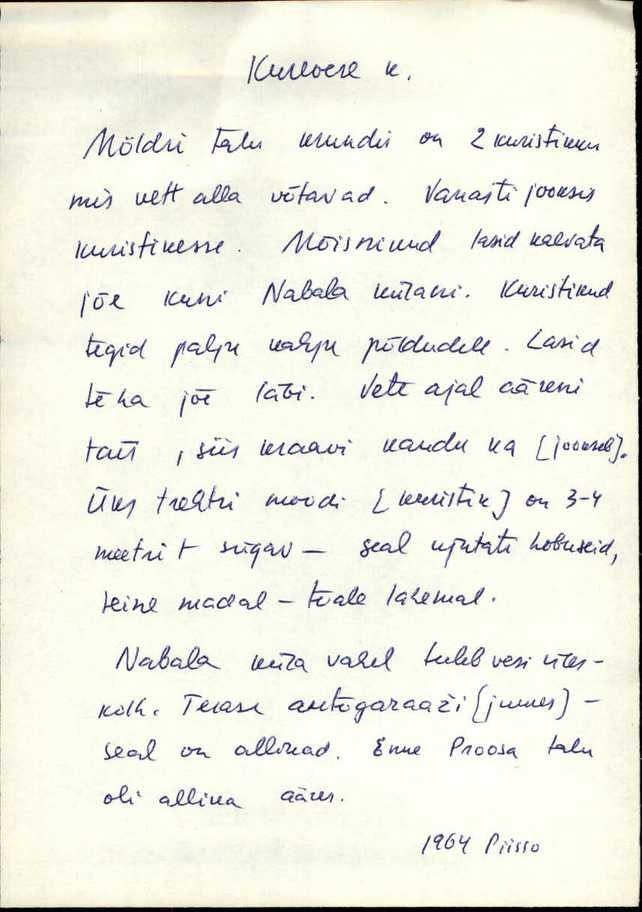 Kurevere k.
Möldri talu krundis on 2 kuristikku
mis vett alla võtavad. Vanasti jooksis
kuristikesse. Mõisnikud lasid kaevata
jõe kuni Nabala külani. Kuristikud
tegid palju kahju põldudele. Lasid
teha jõe läbi. Vete ajal ääreni
täis, siis kraavi kaudu ka [jookseb].
Üks trehtri moodi [kuristik] on 3-4
meetrit sügav — seal ujutati hobuseid,
teine madal — toale lähemal.
Nabala küla vahel tuleb vesi üles-
koha. autogaraaži [juures] —
seal on allikad. Enne Proosa talu
oli allika ääres.
1964 Piisso